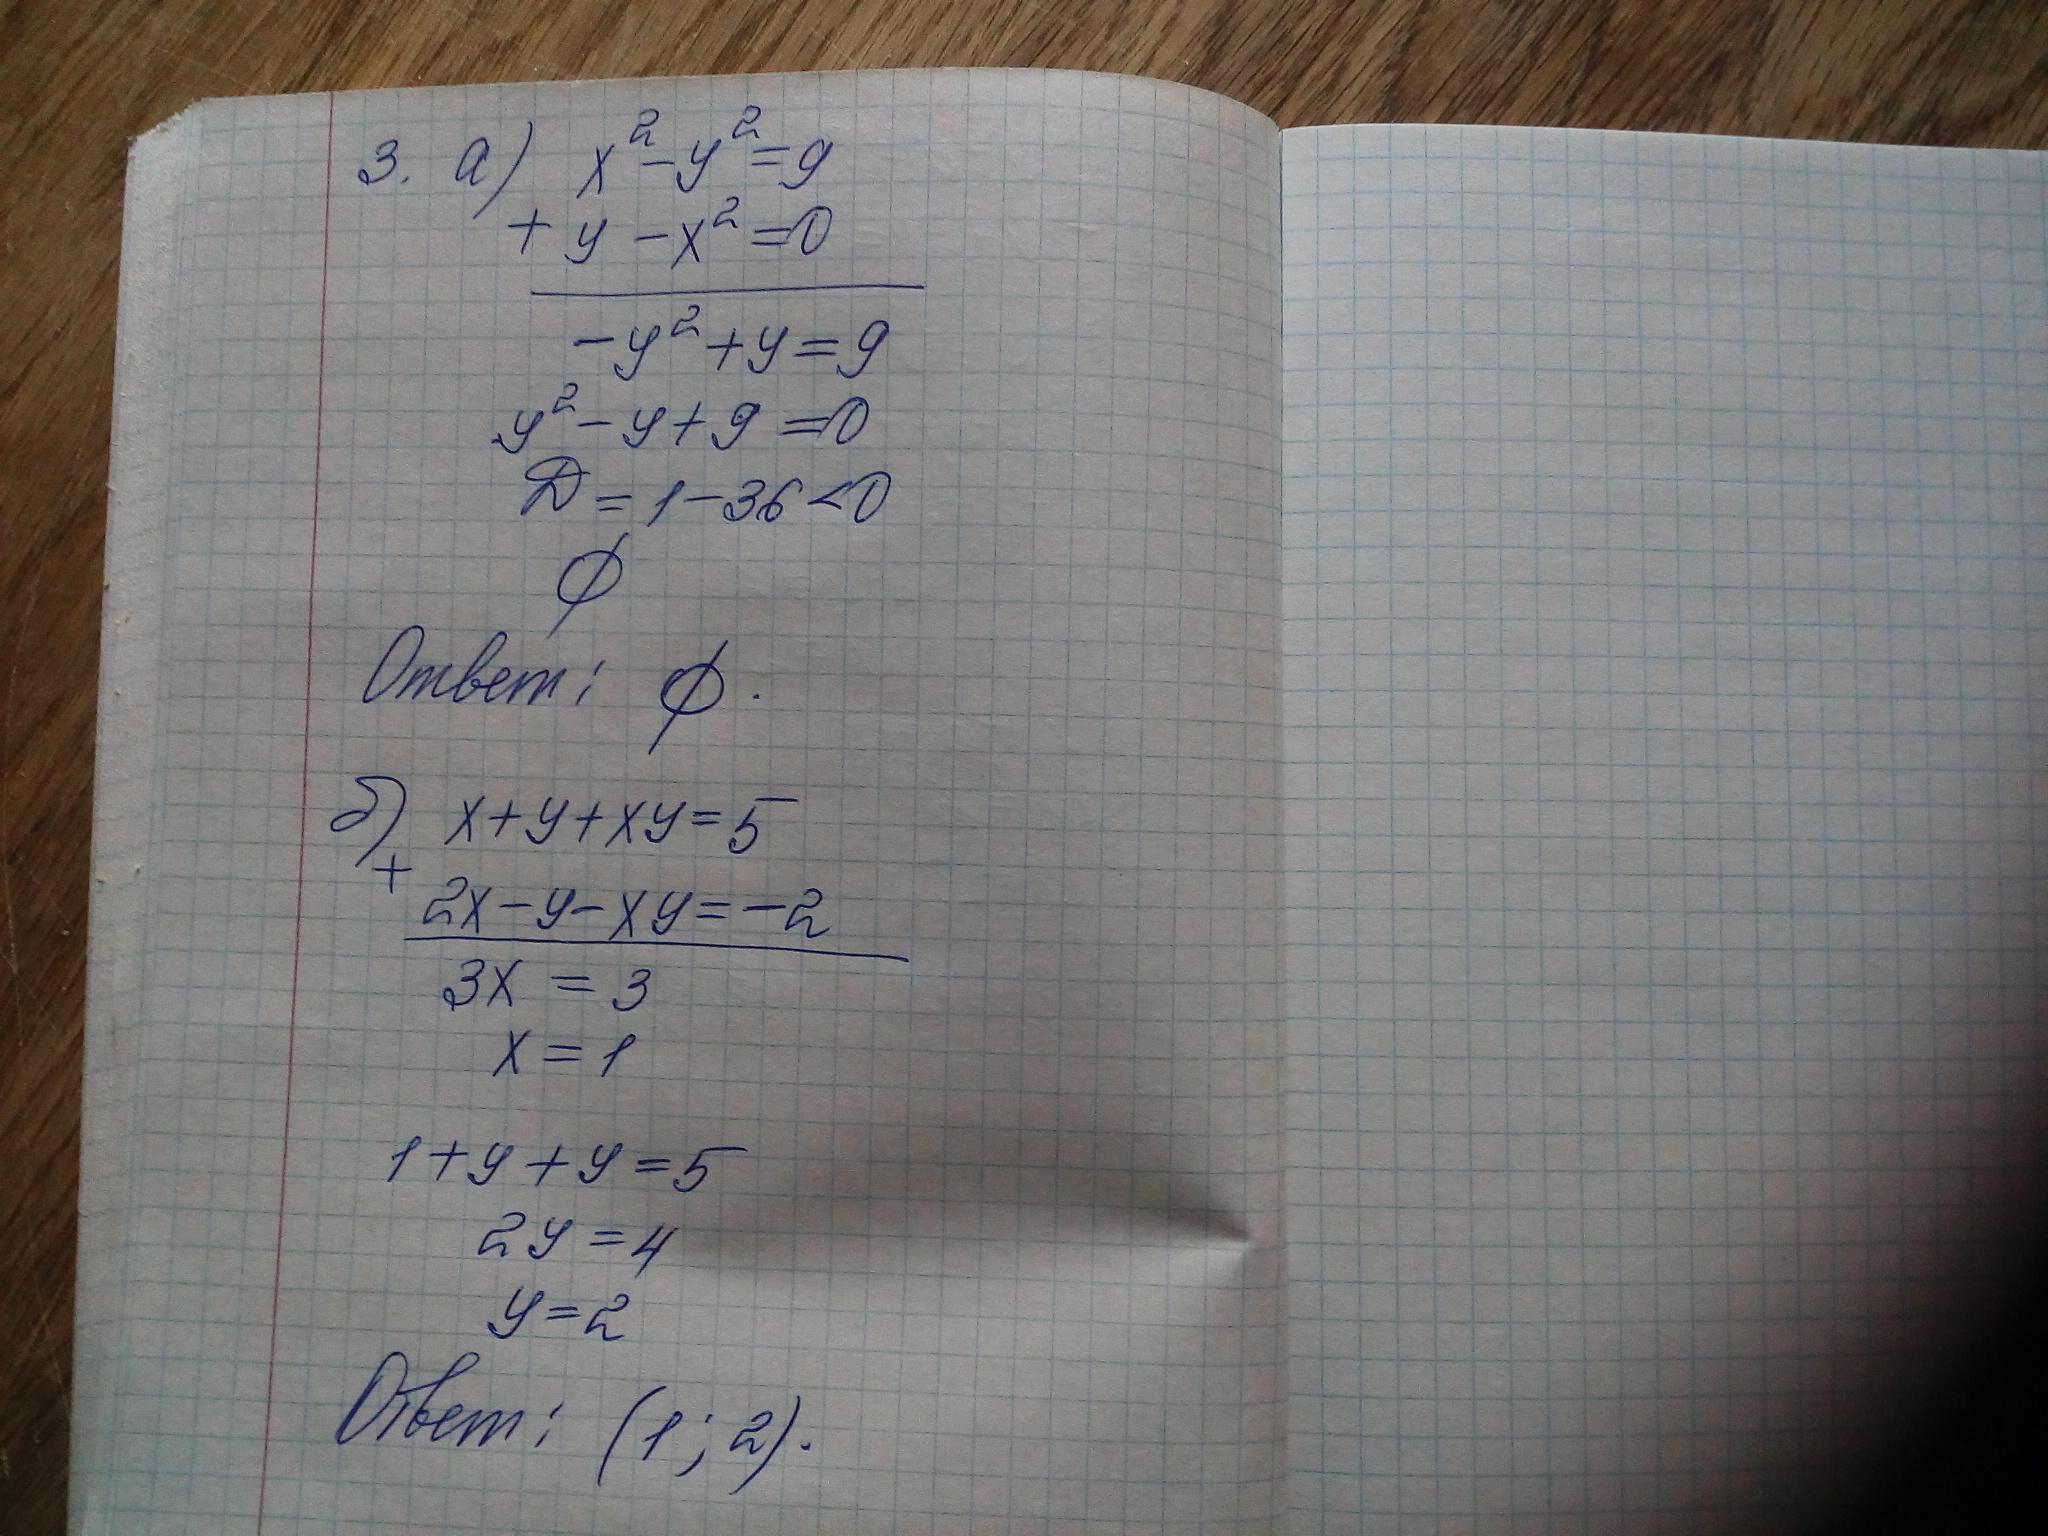 3. а) x² - y² = 9
+ y - x² = 0
-y² + y = 9
y² - y + 9 = 0
D = 1 - 36 < 0
∅
Ответ: ∅.
б) x + y + xy = 5
+
2x - y - xy = -2
3x = 3
x = 1
1 + y + y = 5
2y = 4
y = 2
Ответ: (1; 2).